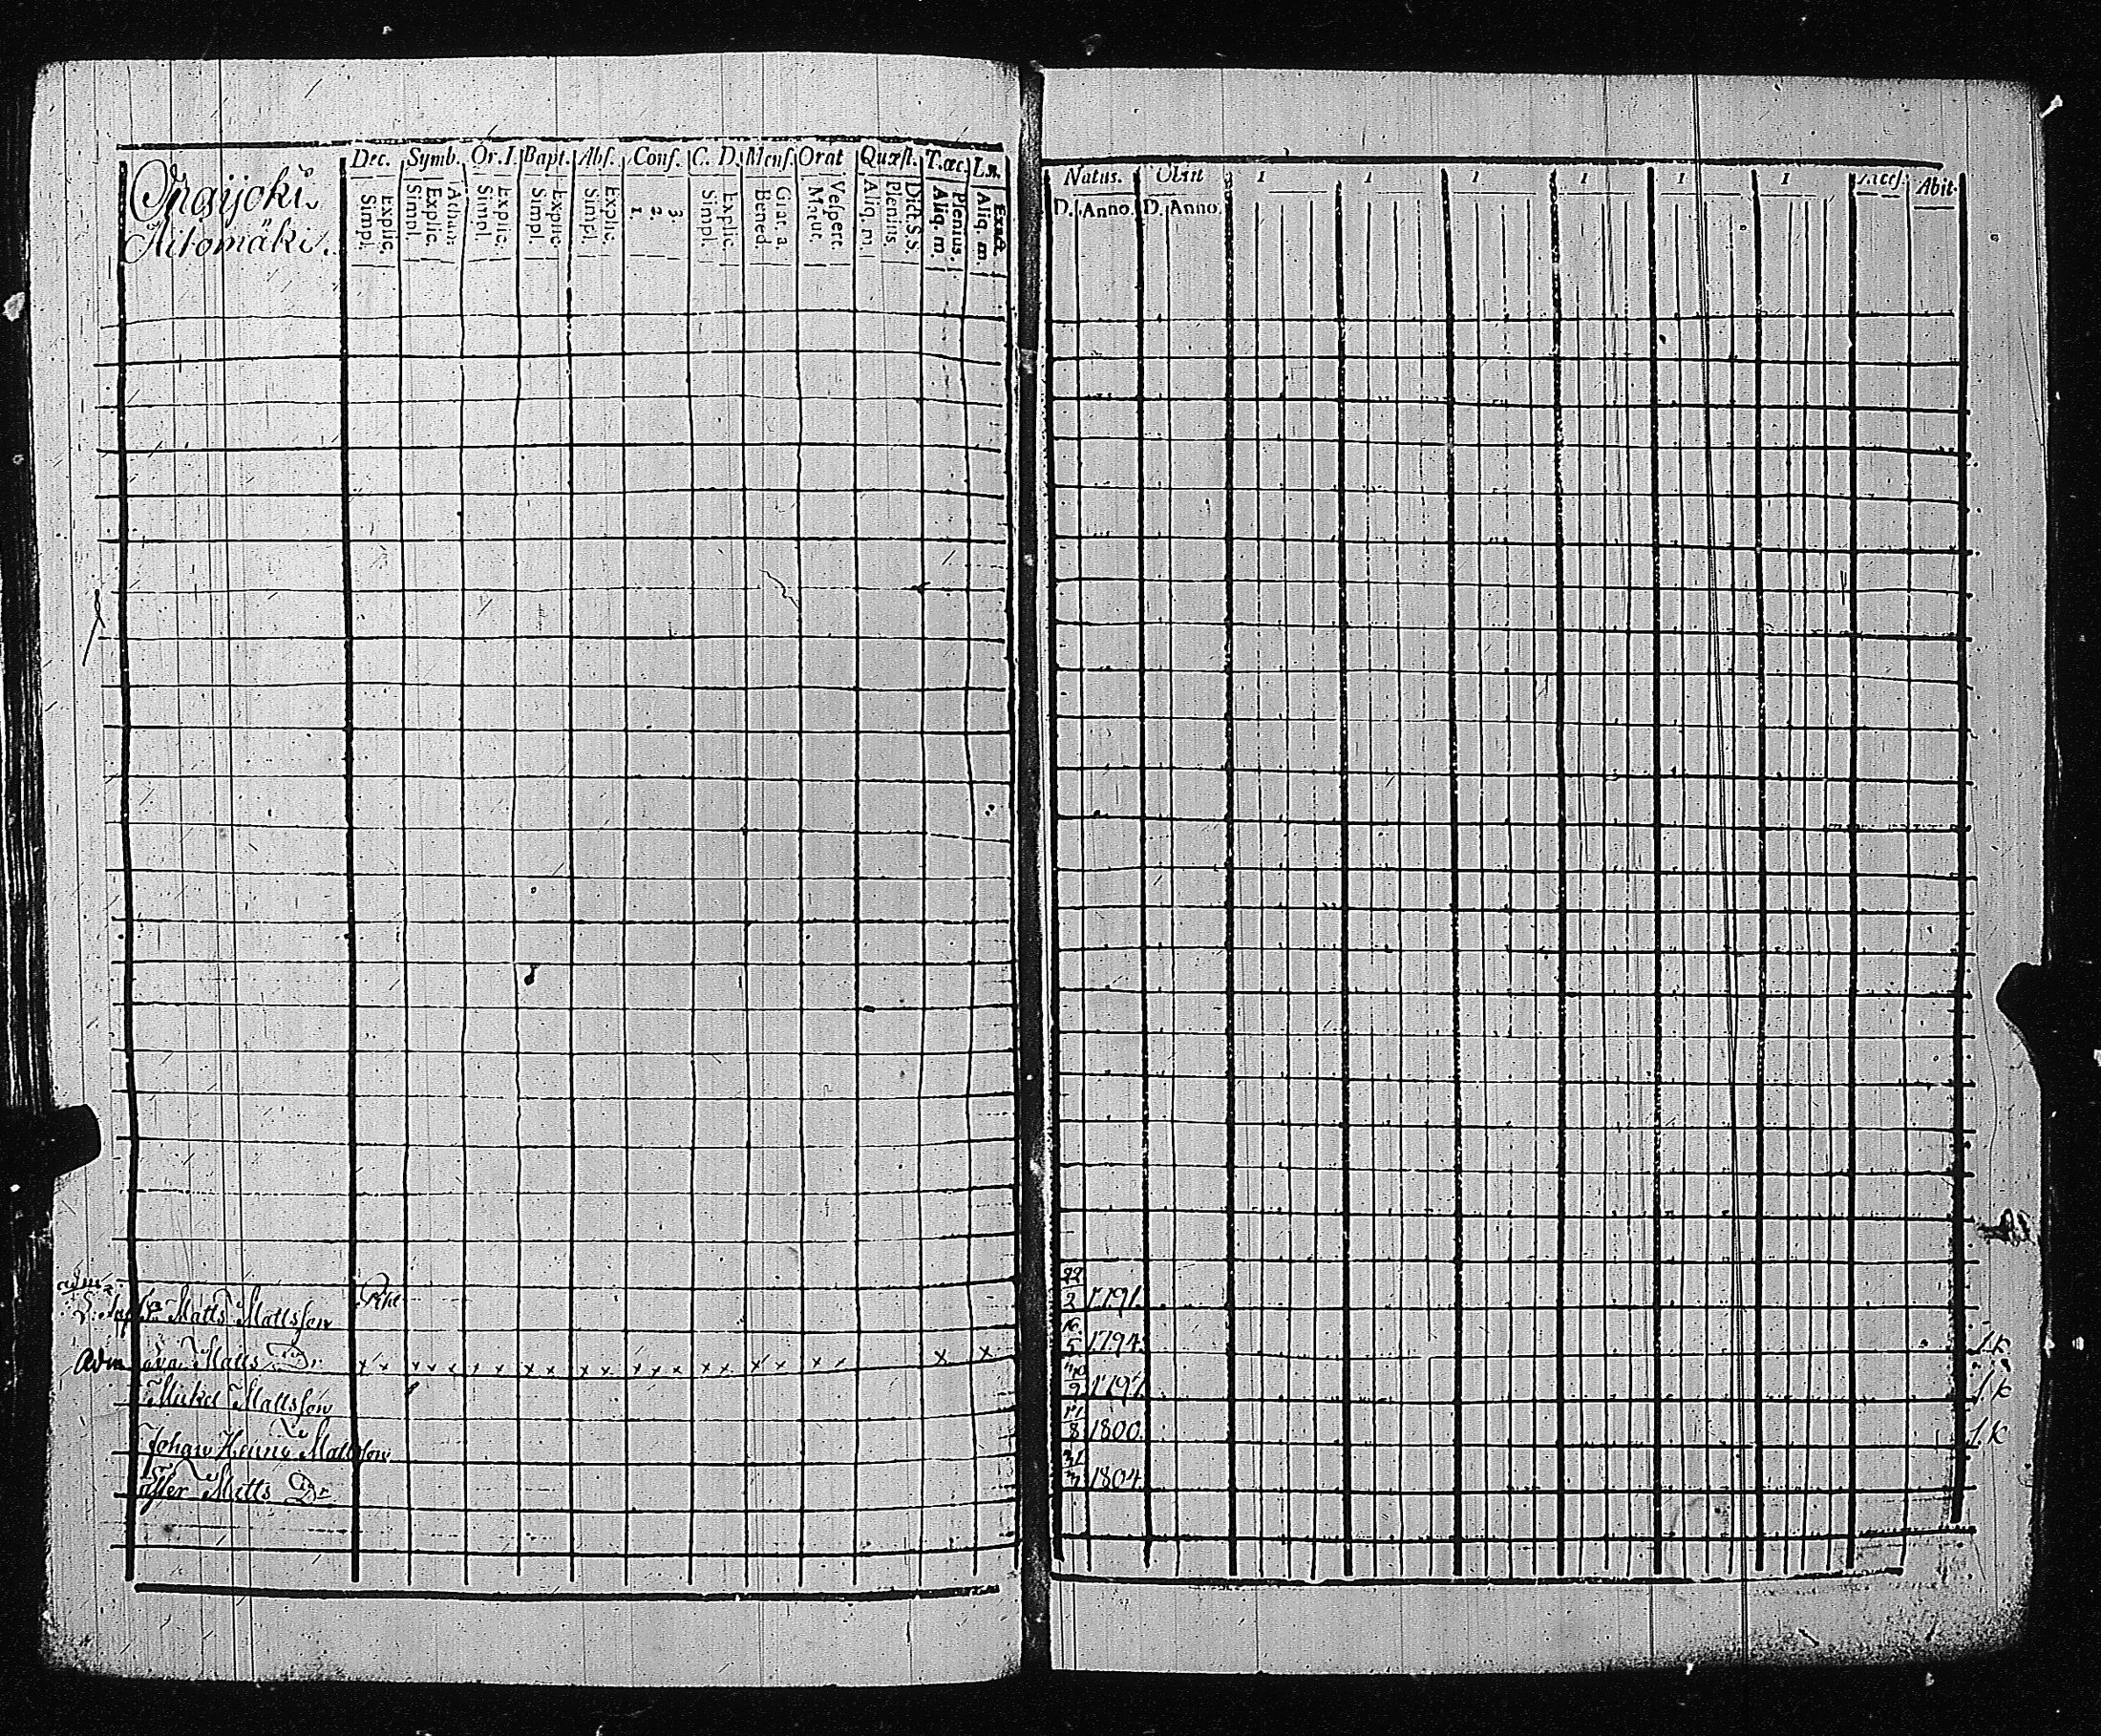 Dec. Symb. Or. I. Bapt. Abs. Conf. C. D. Mens. Orat Quæst. T.æc. L.n.
Simpl. Explic. Simpl. Explic. Athan: Simpl. Explic. Simpl. Explic. Simpl. Explic. 1 2. 3. Simpl. Explic. Bened. Grat. a. Matut. Vespert. Aliq. m. Plenius. Dict. S.S. Aliq. m. Plenius. Aliq. m Exact
Aitomäki.
Matts Mattsson
Adm Matts Dr x x x x x x x x x x x x x x x x x x x x x x
Mickel Mattsson
Johan Mattsson
Matts Dr
Natus. Obiit 1 1 1 1 1 1 Acces. Abit.
D. Anno. D. Anno.
22/2 1791.
16/5 1794.
1797
11/8 1800.
31/3 1804.
1 K
1 K
1 K